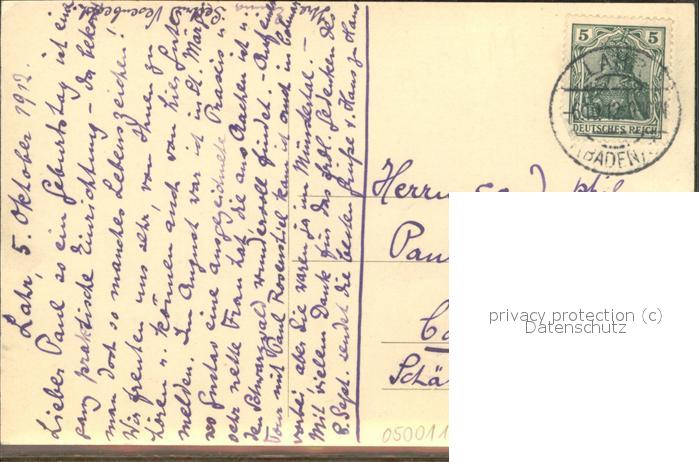 Lahr, 5. Oktober 1912.
Lieber Paul so ein Geburtstag ist eine
ganz praktische Einrichtung – da bekommt
man doch so manches Lebenszeichen!
Wir freuten uns sehr, von Ihnen zu
hören u. können auch von hier Gutes
melden. Im August war ich in St. Märgen
wo Gustav eine ausgezeichnete Praxis u.
sehr nette Frau hat, die aus Aachen ist u.
den Schwarzwald wundervoll findet. – Auf eine
Tour mit Paul Rosenstiel kam ich auch in
vorbei, aber Sie waren ja im Münstertal –
Mit vielem Dank für das frdl. Gedenken des
8. Sept. sendet die besten Grüße v. Haus zu Haus
Ihre
5 5
DEUTSCHES REICH
LAHR
(BADEN)
Herrn phil.
Paul
privacy protection (c)
Datenschutz
050011